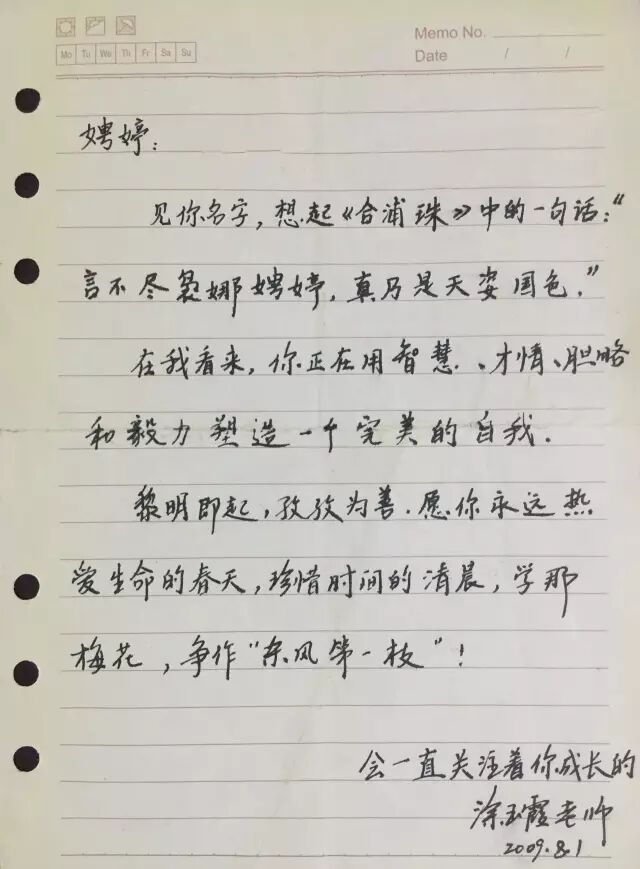 Memo No.
Mo Tu We Th Fr Sa Su
Date / /
娉婷：
见你名字，想起《合浦珠》中的一句话：“
言不尽袅娜娉婷，真乃是天姿国色．”
在我看来，你正在用智慧、才情、胆略
和毅力塑造一个完美的自我．
黎明即起，孜孜为善．愿你永远热
爱生命的春天，珍惜时间的清晨，学那
梅花，争作“东风第一枝”！
会一直关注着你成长的
涂玉霞老师
2009.8.1